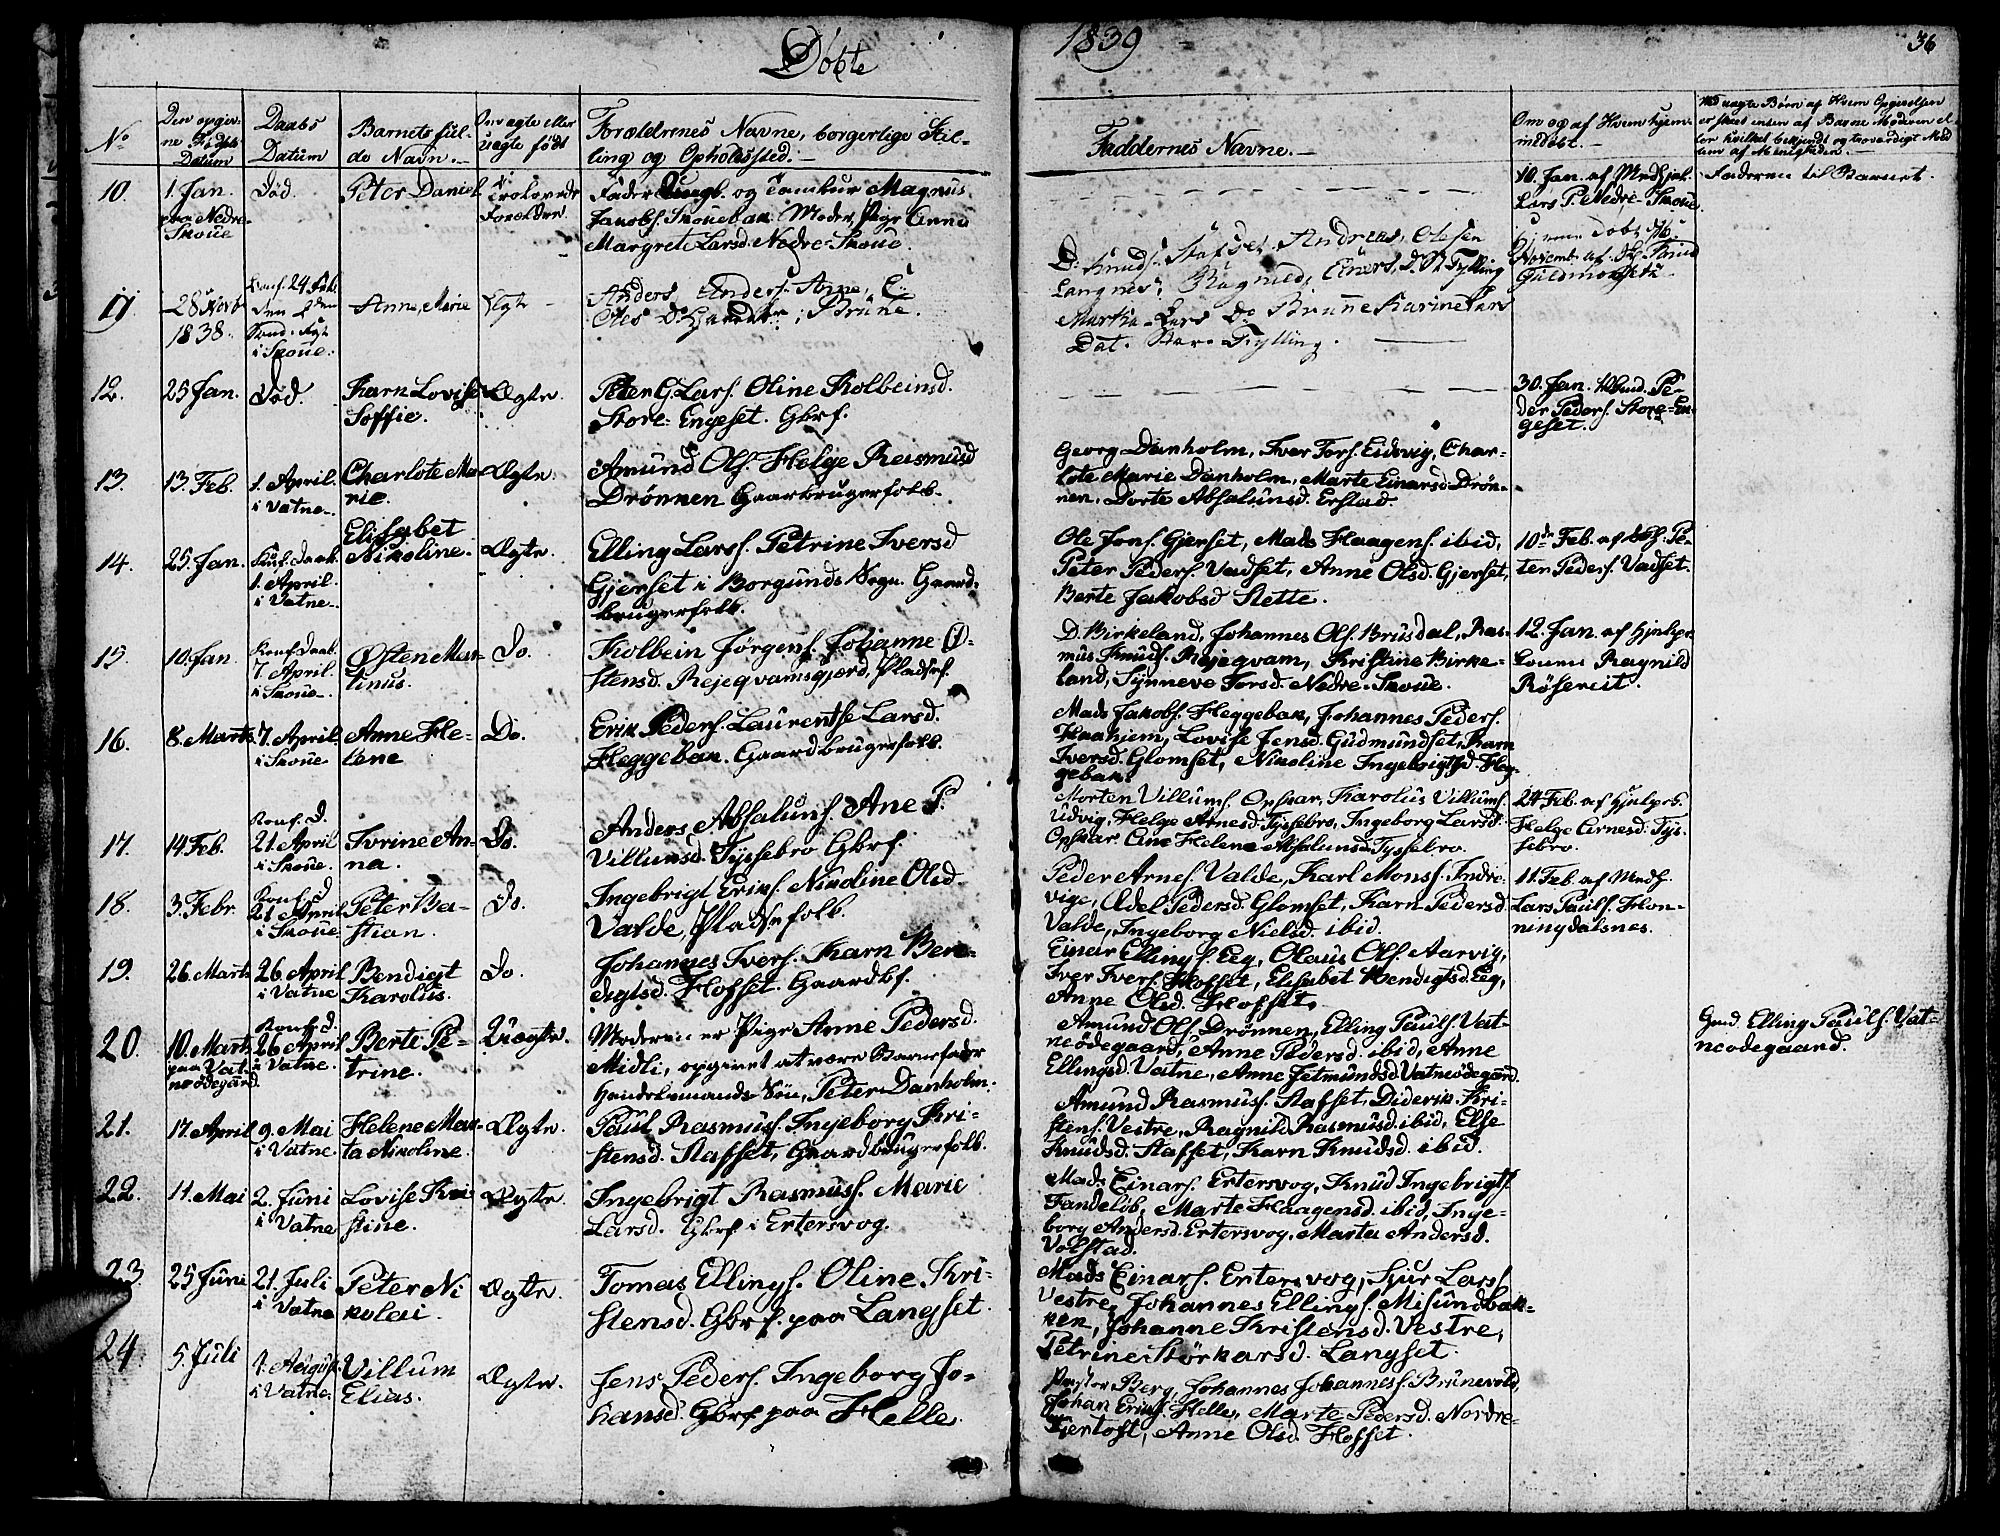 Døbte
1839
36
No
Den opgiv-
ne Fødsels
Datum
Daabs
Datum
Barnets ful-
de Navn.
Om ægte eller
uægte født
Forældrenes Navne, borgerlige Stil-
ling og Opholdssted.
Faddernes Navne.
Om og af Hvem hjem-
medøbt.
Ved uægte Børn af Hvem Opgivelsen
er skeet enten af Barne Moderen el-
ler hvilket bekjendt og troværdigt Med
lem af Menigheden.
10.
1. Jan.
paa Nedre-
Skoue
Død.
Peter Daniel
Trolovede
Forældre.
Fader Ungk. og Tambur Magnus
Jakobs. Skouebak. Moder, Pige Anne
Margrete Larsd. Nedre-Skoue.
10. Jan. af Medhjel.
Lars P. Nedre-Skoue
Faderen til Barnet.
11
28 Novb
1838.
Konf. 24 Feb.
i Skoue.
Anne Marie
Ægte
Anders Anders. Anne
Oles D. Brune.
D. Knuds. Stafset, Andreas Olesen
Langnes, Ragnild Einers. D. St Tylling
Martha Lars Do Brune Karine Lars
Dat. Store Tylling.
Hjemme Døbt
Novemb. af
Guldmonsete
12.
25 Jan.
Død.
Karn Lovise
Soffie.
Ægte.
Peter G. Lars. Oline Kolbeinsd.
Store-Engeset. Gbrf.
30. Jan. Pe-
der Peders. Store-En-
geset.
13.
13. Feb.
1. April.
i Vatne.
Charlote Ma-
rie.
Ægte.
Amund Ols. Helge Rasmusd
Drönnen Gaarbrugerfolk.
Georg Danholm, Iver Tors. Eidsvig, Char-
lote Marie Danholm, Marte Einarsd. Drön-
nen, Dorte Absalunsd. Erstad.
14.
25. Jan.
Konf. Daab.
1. April.
i Vatne.
Elisabet
Nikoline.
Ægte.
Elling Larss. Petrine Iversd
Gjerset i Borgunds Sogn. Gaard-
brugerfolk.
Ole Jons. Gjerset, Mads Haagens. ibid,
Peter Peders. Vadset, Anne Olsd. Gjerset,
Berte Jakobsd Slette.
10de Feb. af Pe-
ter Peders. Vadset.
15.
10. Jan
Konf. Daab.
7. April.
i Skoue.
Østen Mar-
tinus.
Do.
Kolbein Jørgens. Johanne Ø-
stensd. Rejeqvamsgjerd, Pladsf.
D. Birkeland, Johannes Ols. Brusdal, Ras-
mus Knuds. Rejeqvam, Kristine Birke-
land, Synneve Torsd. Nedre-Skoue.
12. Jan. af Hjelpe-
konen Ragnild
Rösereit.
16.
8. Marts
7. April.
i Skoue
Anne He-
lene
Do.
Erik Peders. Laurentse Larsd.
Heggebak. Gaardbrugerfolk.
Mads Jakobs. Heggebak, Johannes Peders.
Haahjem, Lovise Jensd. Gudmundset, Karn
Iversd. Glomset, Nikoline Ingebrigtsd. Heg-
gebak.
17.
14 Feb.
Konf. D.
21. April
i Skoue.
Ivrine An-
na.
Do.
Anders Absaluns. Ane P.
Villumsd. Tyssebro Gbrf.
Morten Villums. Opskar, Karolus Villums.
Udvig, Helge Arnesd. Tyssebro, Ingeborg Larsd.
Opskar, Ane Helene Absalunsd. Tyssebro.
24 Feb. af Hjelpek.
Helge Arnesd. Tys-
sebro.
18.
3. Febr.
Konf. D
21 April
i Skoue.
Peter Ba-
stian.
Do.
Ingebrigt Eriks. Nikoline Olsd.
Valde, Pladsefolk.
Peder Arnes. Valde, Karl Monss. Indre-
vige, Adel Pedersd. Glomset, Karn Pedersd.
Valde, Ingeborg Nielsd. ibid.
11. Feb. af Medh.
Lars Pauls. Hon-
ningdalsnes.
19.
26. Marts
26. April
i Vatne
Bendigt
Karolus.
Do.
Johannes Ivers. Karn Ben-
digtsd. Hofset. Gaardbf.
Einar Ellings. Eeg, Olaus Ols. Aarvig,
Iver Ivers. Hofset, Elisabet Bendigtsd. Eeg,
Anne Olsd. Hofset.
20.
10. Marts
paa Vat-
neødegård.
Konf. D.
26 April
i Vatne.
Berte Pe-
trine.
Uægte.
Moderen er Pige Anne Pedersd.
Midli, opgivet at være Barnefader
Handelsmands-Søn, Peter Danholm.
Amund Ols. Drönnen, Elling Pauls. Vat-
neödegaard, Anne Pedersd. ibid, Anne
Ellingsd. Vatne, Anne Jetmundsd. Vatneödegård.
Gmd. Elling Pauls. Vat-
neødegaard.
21.
17. April
9. Mai
i Vatne.
Helene Mar-
ta Nikoline.
Ægte.
Paul Rasmuss. Ingeborg Kri-
stensd. Stafset, Gaardbrugerfolk.
Amund Rasmuss. Stafset, Diderik Kri-
stens. Vestre, Ragnild Rasmusd. ibid, Else
Knudsd. Stafset, Karn Knudsd. ibid.
22.
11. Mai
2. Juni
i Vatne
Lovise Kri-
stine.
Ægte.
Ingebrigt Rasmuss. Marie
Larsd. Gbrf. i Ertersvog.
Mads Einars. Ertersvog, Knud Ingebrigts.
Tandelöb, Marte Haagensd. ibid, Inge-
borg Andersd. Ertersvog, Marta Andersd.
Volstad.
23.
25 June
21. Juli
i Vatne
Peter Ni
kolai.
Ægte.
Tomas Ellings. Oline Kri-
stensd. Gbrf. paa Langset.
Mads Einars. Ertersvog, Sjur Lars.
Vestre, Johannes Ellings. Misundbak-
ken, Johanne Kristensd. Vestre,
Petrine Störkarsd. Langset.
24
5. Juli
4. August
i Vatne.
Villum
Elias.
Ægte.
Jens Peders. Ingeborg Jo-
hansd. Gbrf. paa Helle.
Pastor Berg, Johannes Johanness. Brunevold,
Johan Eriks. Helle, Marte Pedersd. Nordre-
Gjertoft, Anne Olsd. Hofset.